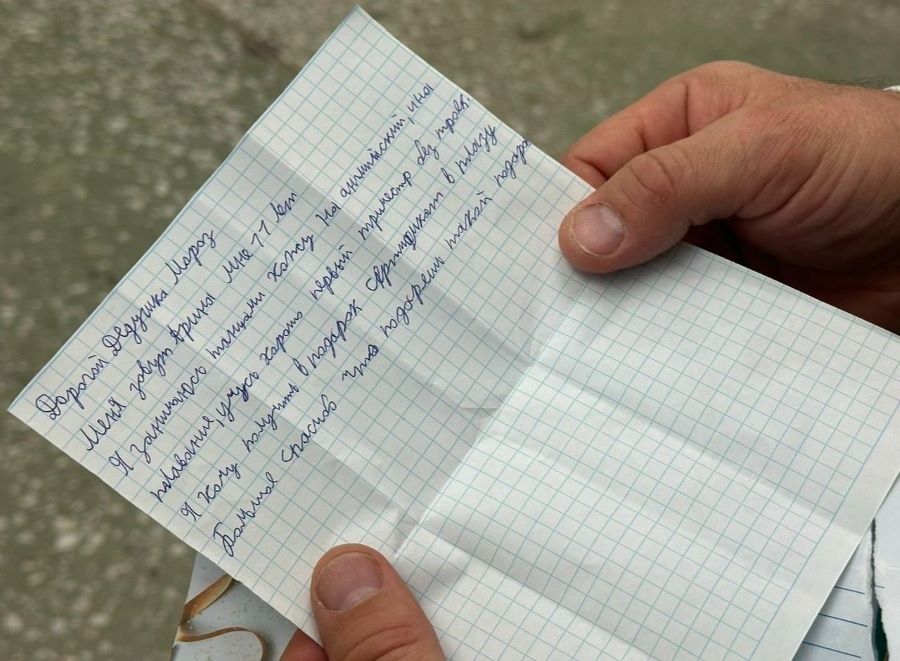 Дорогой Дедушка Мороз
Меня зовут Арина мне 11 лет
Я занимаюсь танцами хожу на английский, и на
плавание, учусь харашо первый триместр без троек.
Я хочу получить в подарок сертификат в
Большое спасибо что подаришь такой подаро